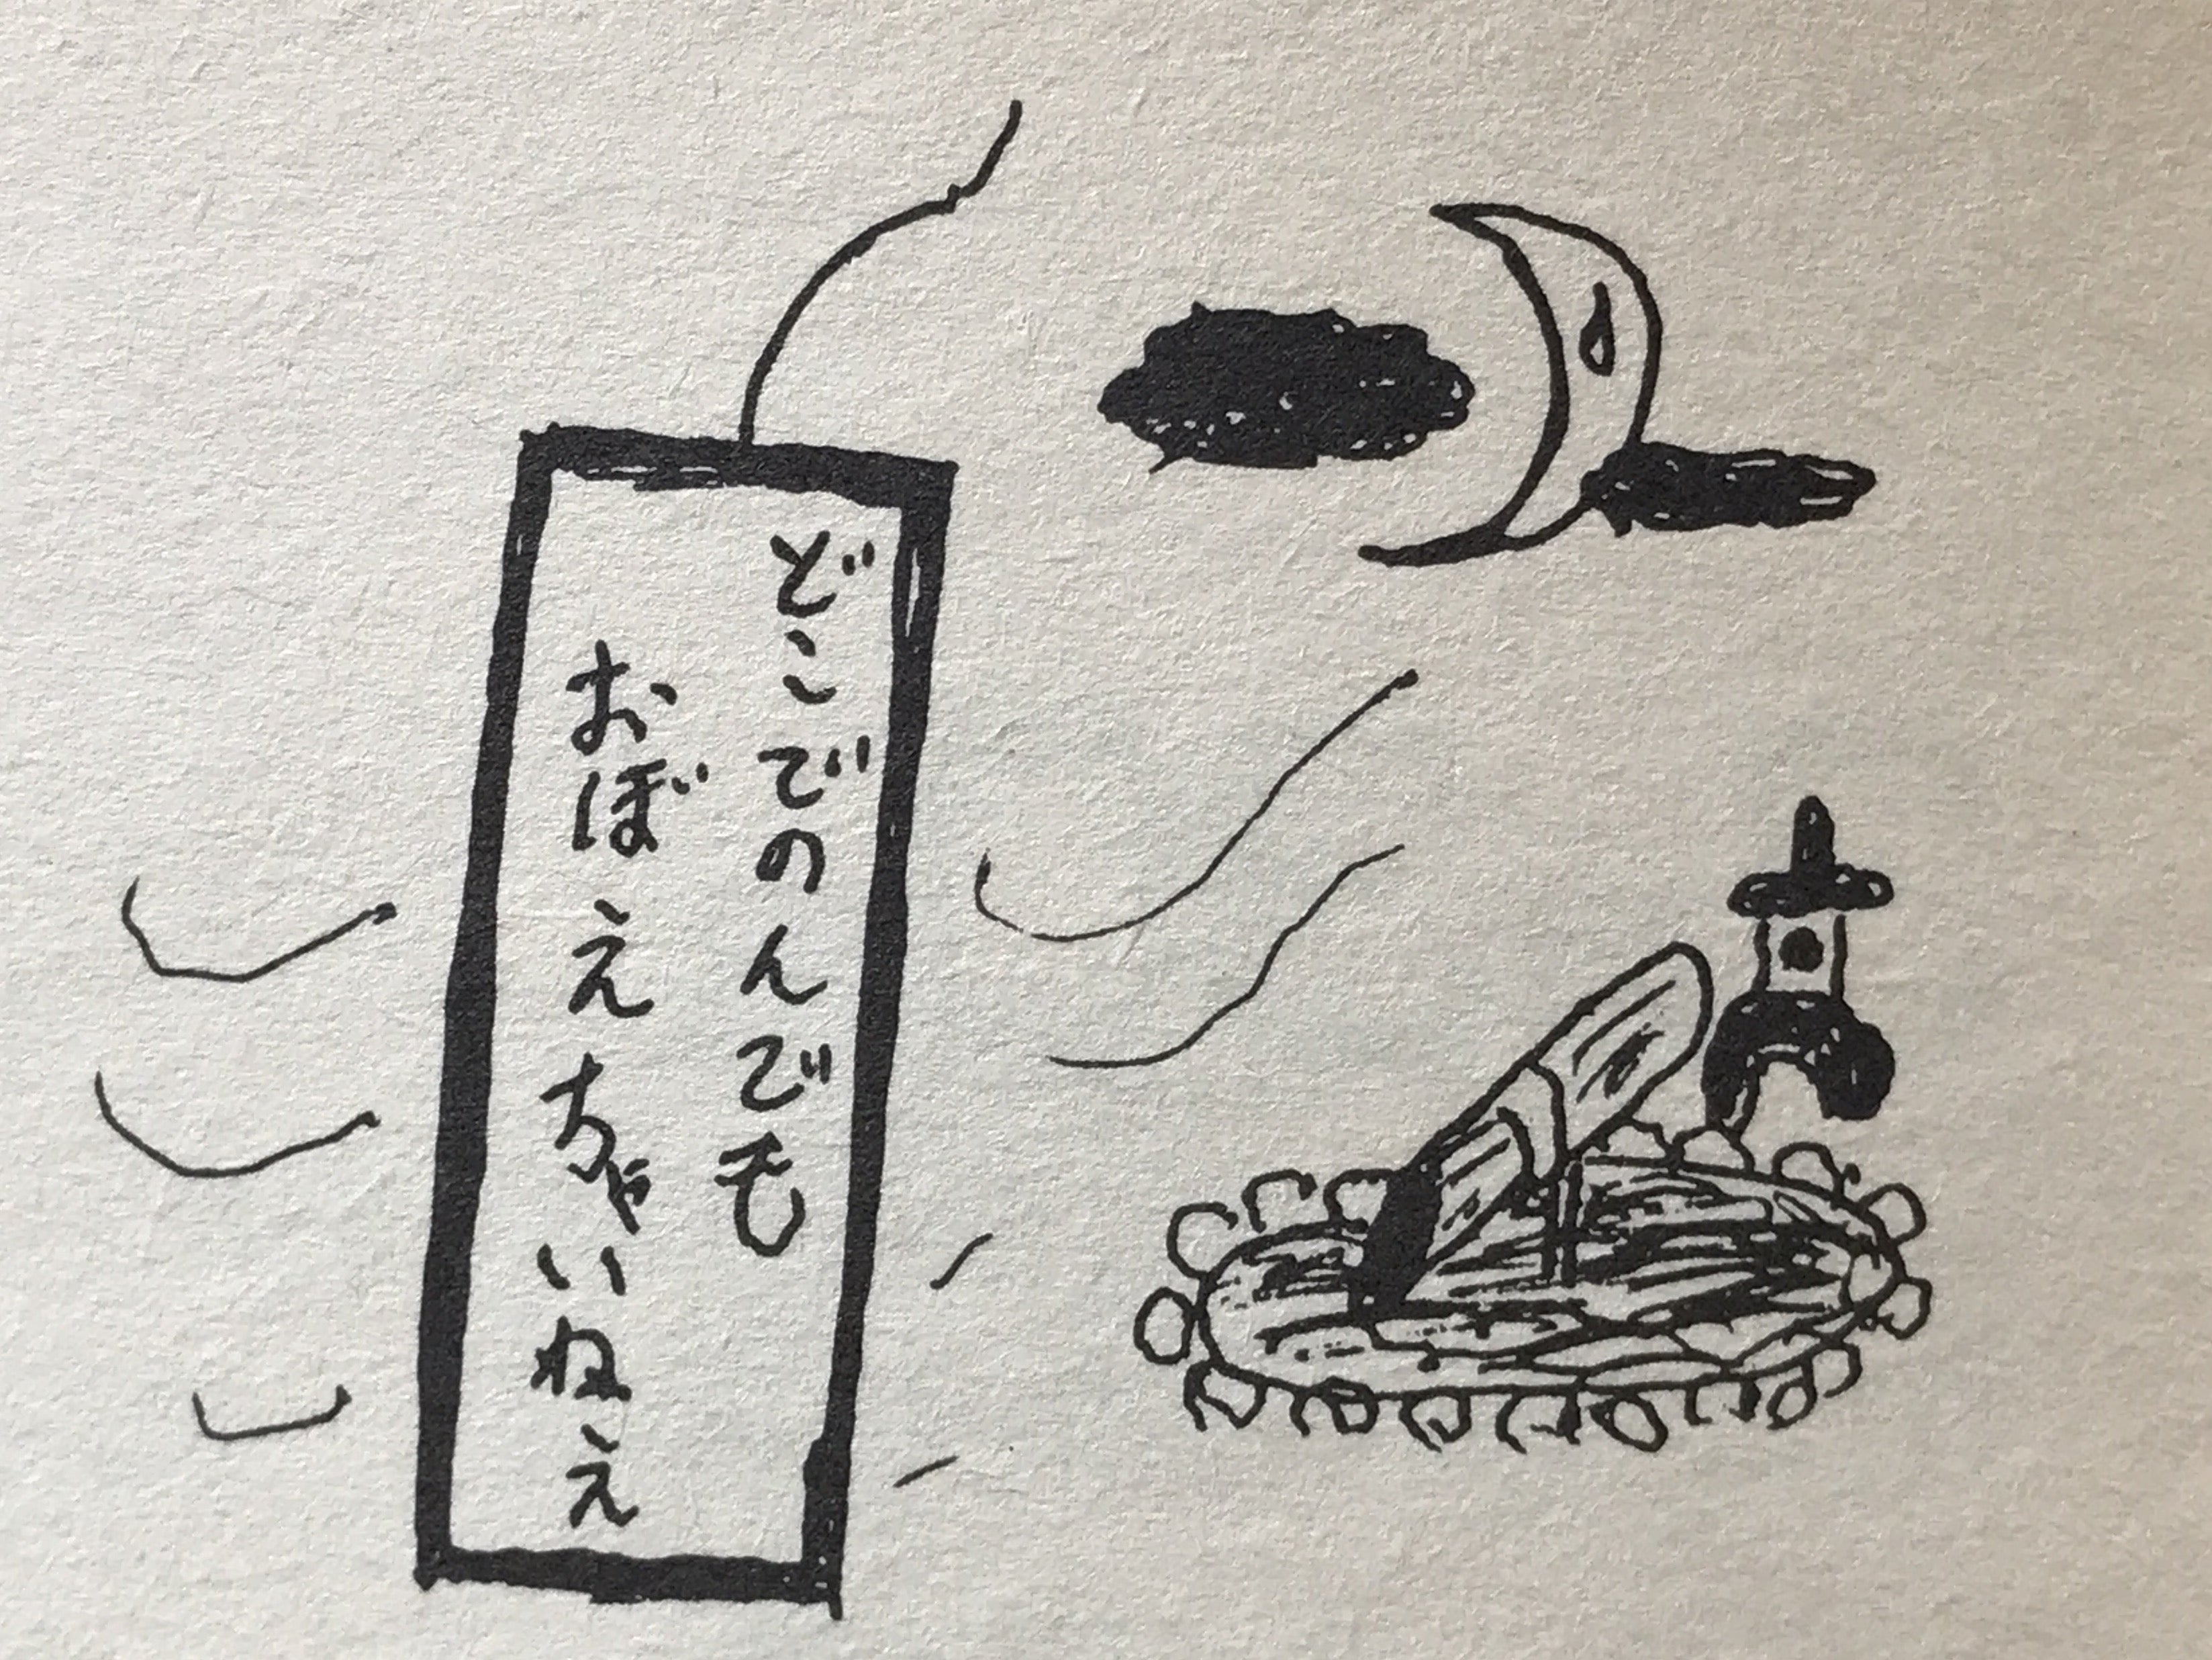 どこでのんでも
おぼえちゃいねえ